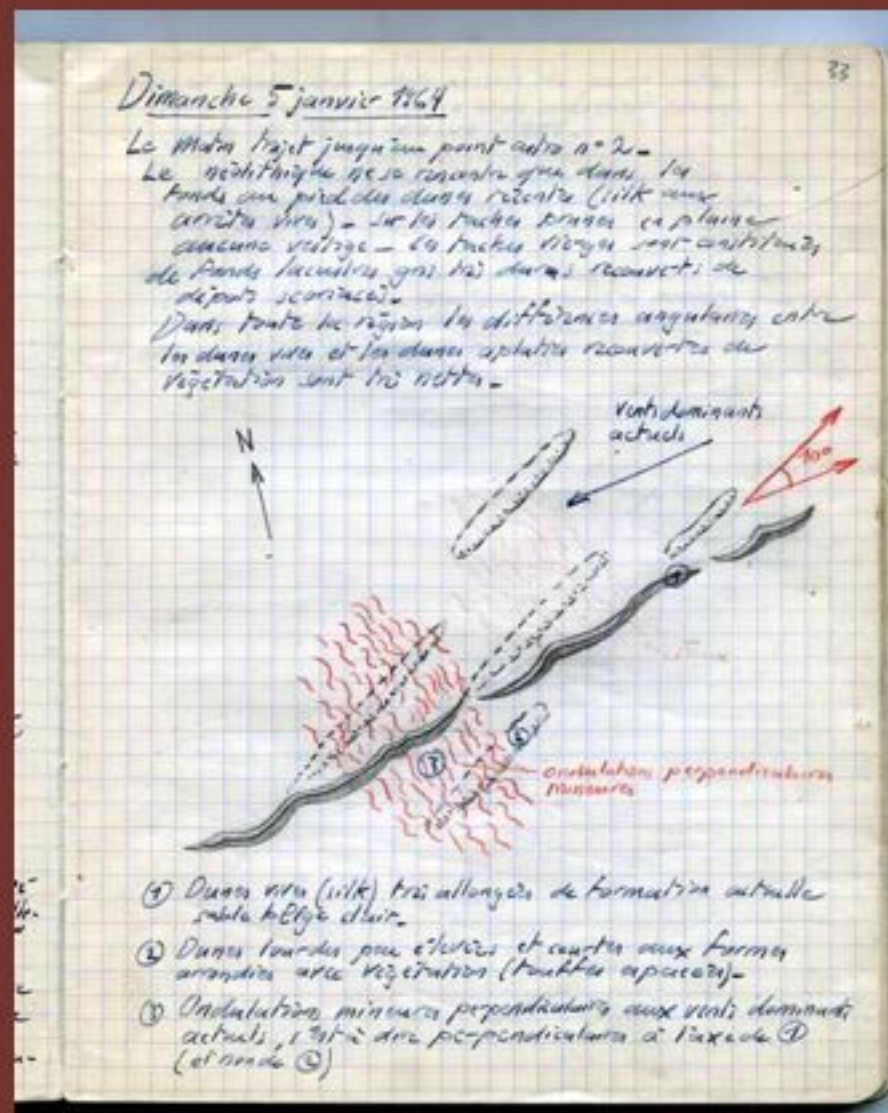 33
Dimanche 5 janvier 1964
Le Matin trajet jusqu'au point astro n° 2 -
Le néolithique ne se rencontre que dans les
fonds au pied des dunes récentes (silk aux
arrêtes vives) - sur les taches brunes en plaine
aucune vestige - Les taches sont constituées
de fonds lacustres gris très durs recouverts de
dépots scoriacés -
Dans toute la région les différences angulaires entre
les dunes vives et les dunes aplaties recouvertes de
végétation sont très nettes -
N
vents dominants
actuels
10°
1
2
3
ondulations perpendiculaires
mineures
① Dunes vives (silk) très allongées de formation actuelle
sable clair -
② Dunes lourdes peu élevées et courtes aux formes
arrondies avec végétation (touffes espacées) -
③ Ondulations mineures perpendiculaires aux vents dominants
actuels, c'est à dire perpendiculaires à l'axe de ①
(et non de ②)